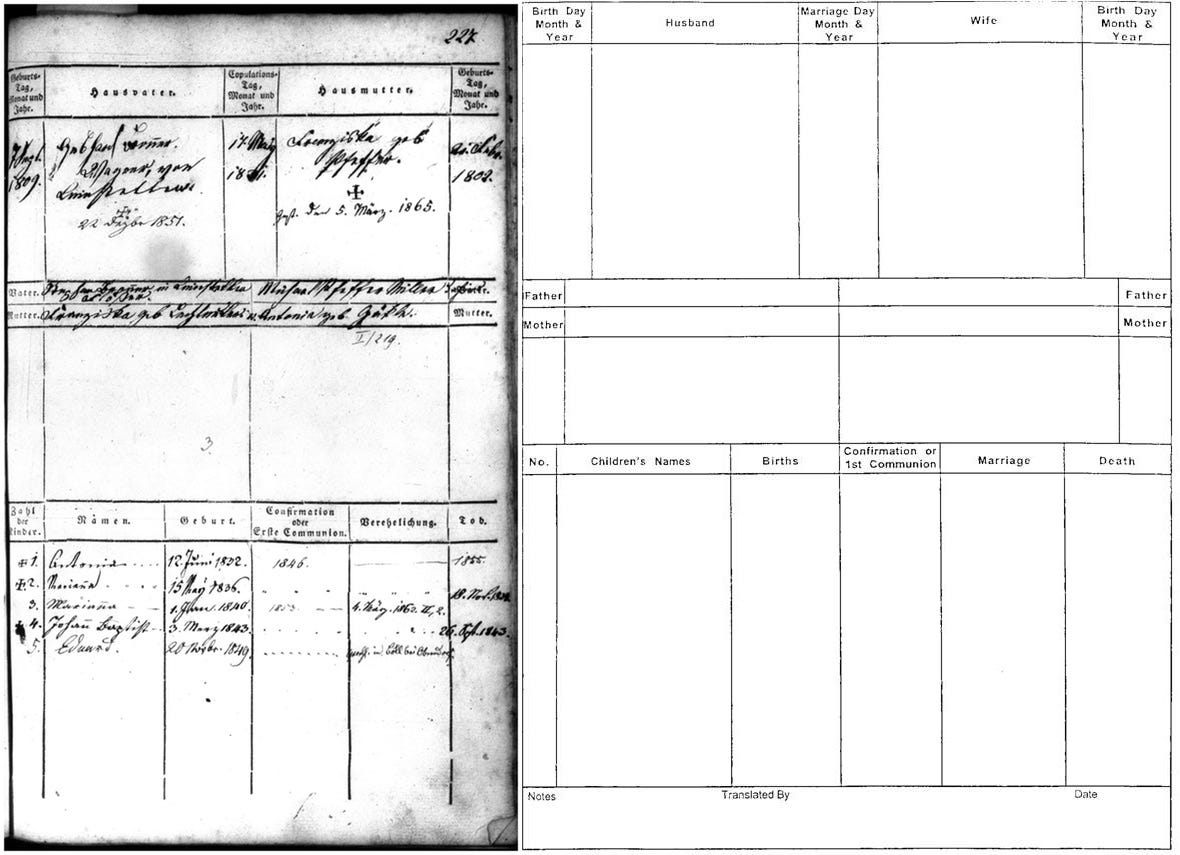 227
Geburts-
Tag,
Monat und
Jahr.
Hausvater.
Copulations-
Tag,
Monat und
Jahr.
Hausmutter.
Geburts-
Tag,
Monat und
Jahr.
7 Sept.
1809.
Gebhard
Wagner, von
22 Dezbr 1851.
17 May
Franziska geb
Pfeffer.
gest. den 5. März. 1865.
Vater.
Michael Pfeffer Miller
Mutter.
Franziska geb
Antonia geb
Mutter.
I/219.
3
Zahl
der
Kinder.
Namen.
Geburt.
Confirmation
oder
Erste Communion.
Verehelichung.
Tod.
1. Antonia 12 Juni 1832. 1846. 1855.
2. Marianna 15 May 1836.
3. Marianna 1. Jan. 1840. 1853
4. Johann Baptist 3. Merz 1843. 26. Sept. 1843.
5. Eduard. 20 Novbr. 1849.
Birth Day
Month &
Year
Husband
Marriage Day
Month &
Year
Wife
Birth Day
Month &
Year
Father
Father
Mother
Mother
No.
Children's Names
Births
Confirmation or
1st Communion
Marriage
Death
Notes
Translated By
Date